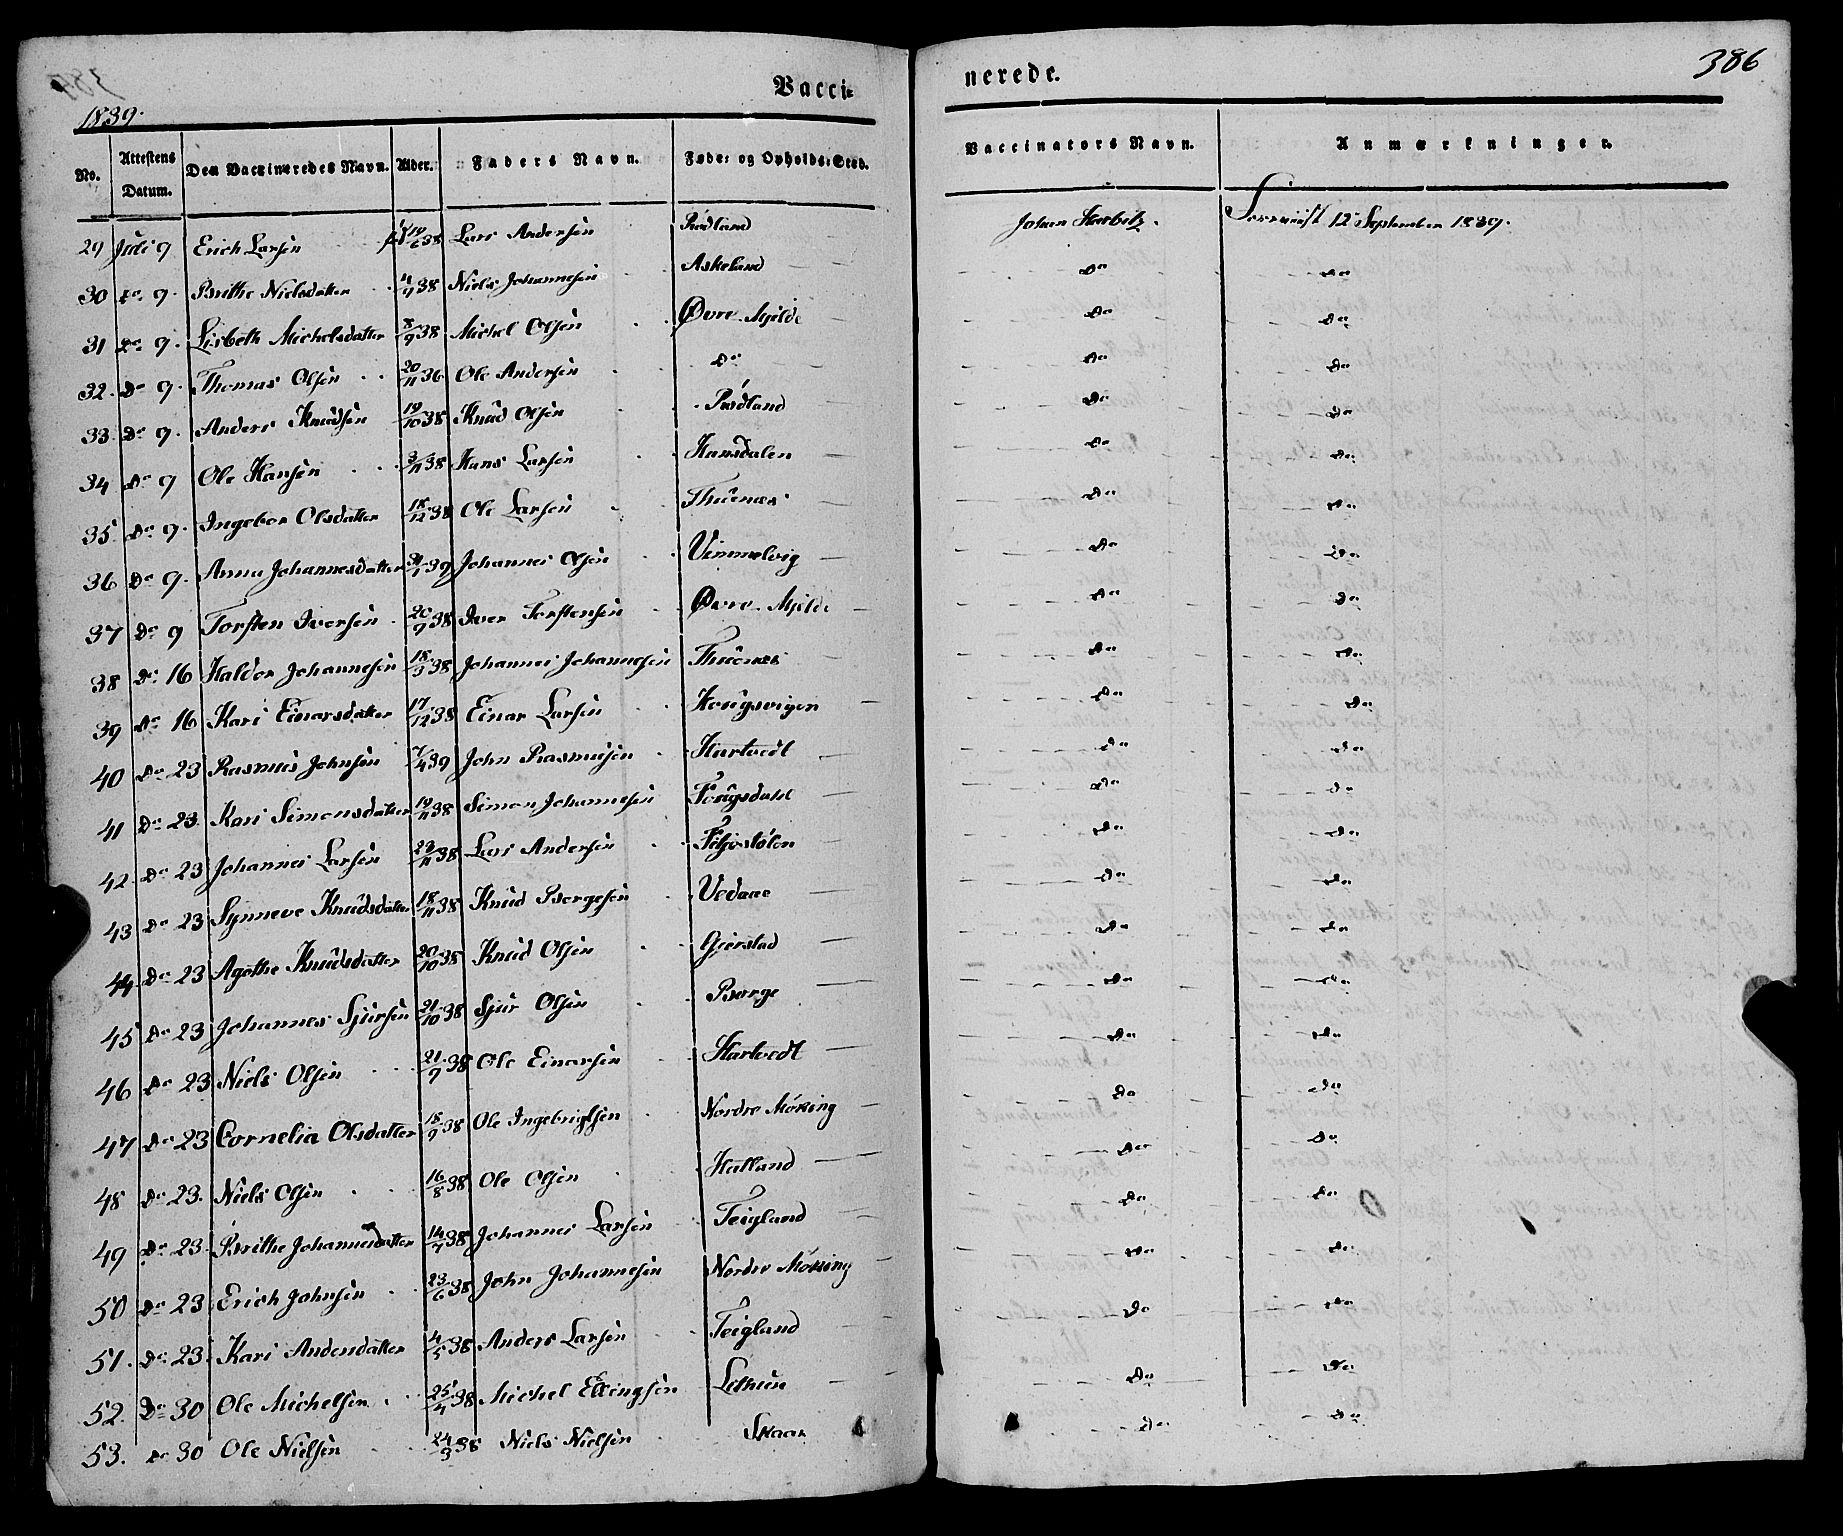 386
Vacci= nerede.
1839.
No. Attestens Datum. Den Vaccineredes Navn. Alder. Faders Navn. Føde= og Opholds=Sted. Vaccinators Navn. Anmærkninger.
29 Juli 9 Erich Larsen 19/6 38 Lars Andersen Rødland Johan Korbitz. Foreviist 12 September 1839.
30 Do 9. Brithe Nielsdatter 4/9 38 Niels Johannesen Askeland Do Do
31 Do 9. Lisbeth Michelsdatter 8/9 38 Michel Olsen Øvre Mjelde Do Do
32. Do 9. Thomas Olsen 20/11 36 Ole Andersen Do Do Do
33. Do 9. Anders Knudsen 19/10 38 Knud Olsen Rødland Do Do
34 Do 9 Ole Hansen 3/11 38 Hans Larsen Hansdalen Do Do
35. Do 9. Ingebor Olsdatter 18/12 38 Ole Larsen Thuenæs Do Do
36 Do 9. Anna Johannesdatter 39 Johannes Olsen Vimmelvig Do Do
37 Do 9 Torsten Iversen 20/9 38 Iver Torstensen Øvre Mjelde Do Do
38 Do 16 Haldor Johannesen 18/3 38 Johannes Johannesen Thuenæs Do Do
39 Do 16 Kari Einarsdatter 17/12 38 Einar Larsen Hougsvigen Do Do
40 Do 23 Rasmus Johnsen 7/4 39 John Rasmusen Hartvedt Do Do
41 Do 23. Kari Simonsdatter 19/11 38 Simon Johannesen Fougsdahl Do Do
42. Do 23 Johannes Larsen 23/11 38 Lars Andersen Do Do
43 Do 23 Synneve Knudsdatter 18/11 38 Knud Borgesen Vedaae Do Do
44 Do 23 Agathe Knudsdatter 20/10 38 Knud Olsen Gjerstad Do Do
45 Do 23 Johannes Sjursen 21/10 38 Sjur Olsen Borge Do Do
46 Do 23 Niels Olsen 21/9 38 Ole Einarsen Hartvedt Do Do
47 Do 23 Cornelia Olsdatter 18/9 38 Ole Ingebrigtsen Nordre Møking Do Do
48 Do 23. Niels Olsen 16/8 38 Ole Olsen Hatland Do Do
49 Do 23. Brithe Johannesdatter 14/7 38 Johannes Larsen Teigland Do Do
50 Do 23 Erich Johnsen 23/6 38 John Johannesen Nordre Møking Do Do
51. Do 23. Kari Andersdatter 4/5 38 Anders Larsen Teigland Do Do
52. Do 30 Ole Michelsen 25/4 38 Michel Ellingsen Lethun Do Do
53. Do 30 Ole Nielsen 24/3 38 Niels Nielsen Skaar Do Do